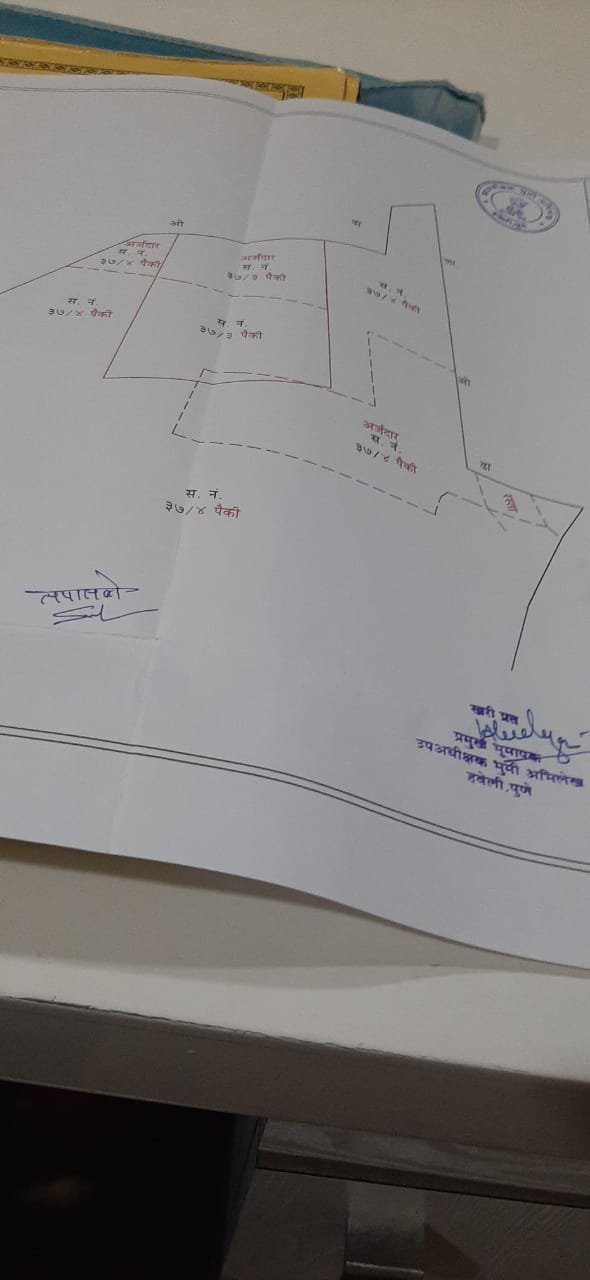 ओ
वा
अर्जदार
स. नं.
३७/४ पैकी
अर्जदार
स. नं.
३७/३ पैकी
स. नं.
३७/४ पैकी
स. नं.
३७/४ पैकी
स. नं.
३७/३ पैकी
ओ
अर्जदार
स. नं.
३७/४ पैकी
ढा
स. नं.
३७/४ पैकी
तपासले
खरी प्रत
प्रमुख भूमापक
उपअधीक्षक भुमी अभिलेख
हवेली,पुणे